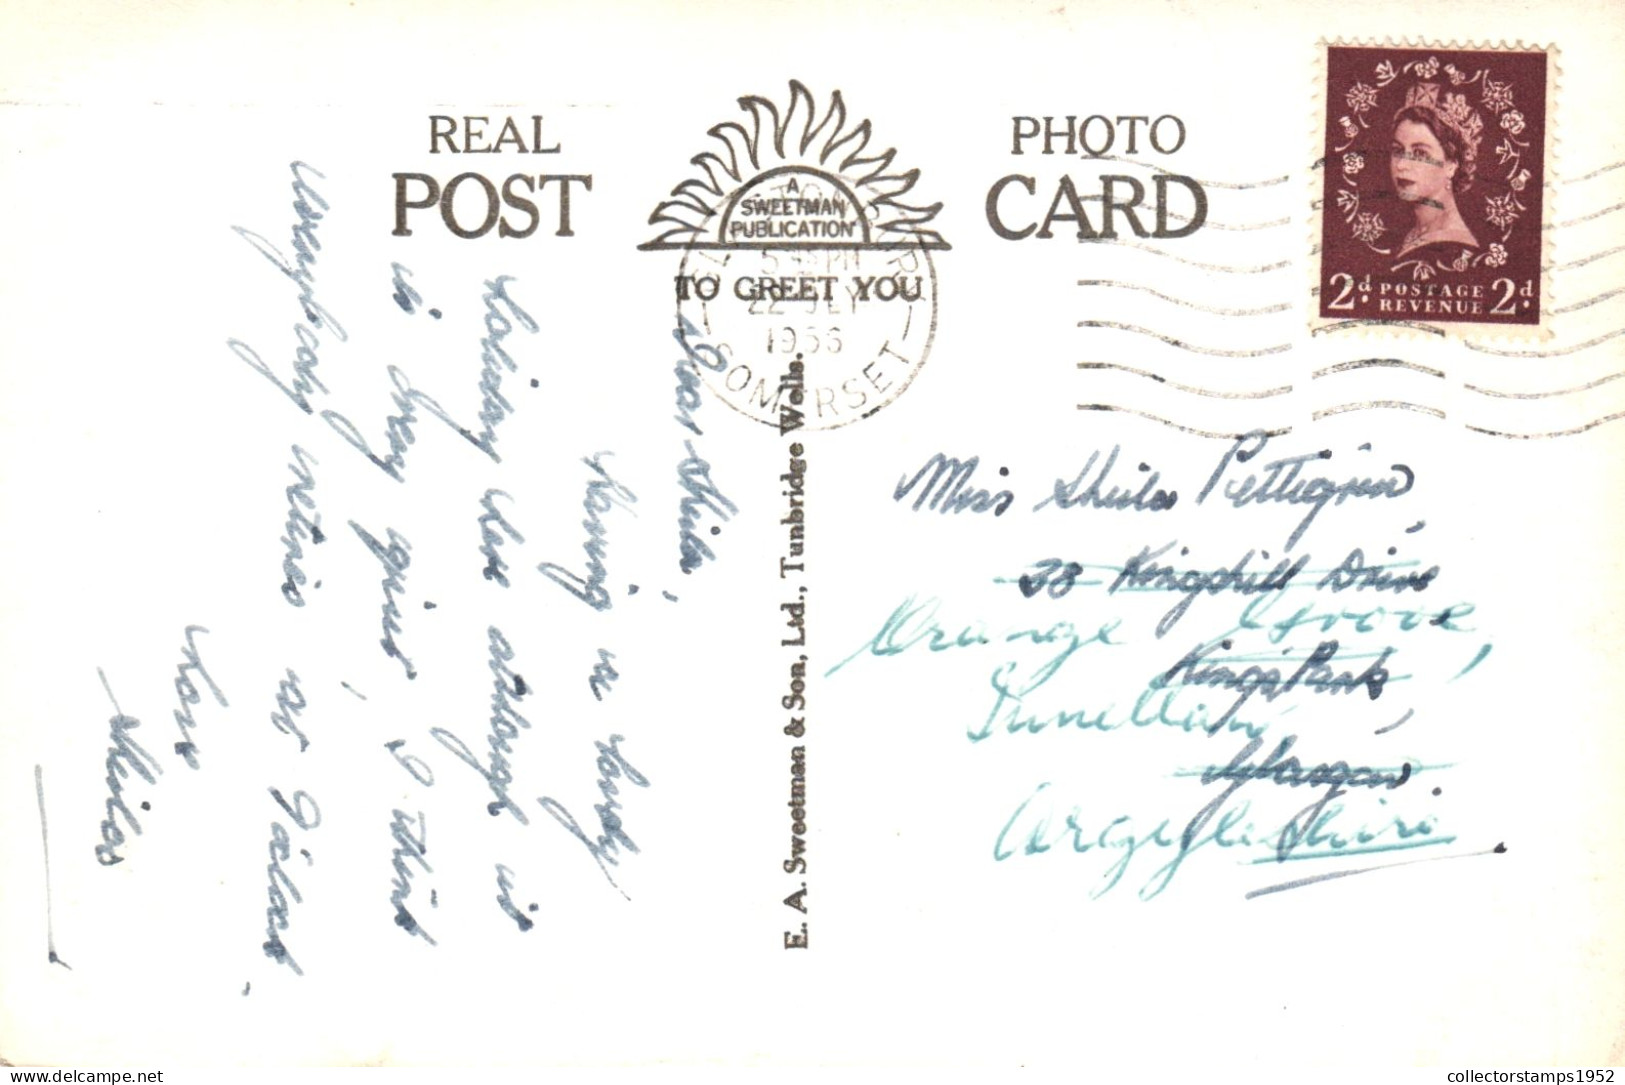 REAL
POST
PHOTO
CARD
A
SWEETMAN
PUBLICATION
TO GREET YOU
5 45 PM
22 JLY
1956
SOMERSET
2d POSTAGE 2d
REVENUE
E. A. Sweetman & Son, Ltd., Tunbridge Wells.
Dear Sheila,
Having a lovely
holiday here although it
is very quiet, I think
everybody retires at 9 o'clock,
Love
Sheila
Miss Sheila Pettigrew,
38 Kingshill Drive
Orange Grove,
King's Park
Innellan,
Glasgow
Argyleshire.
collectorstamps1952